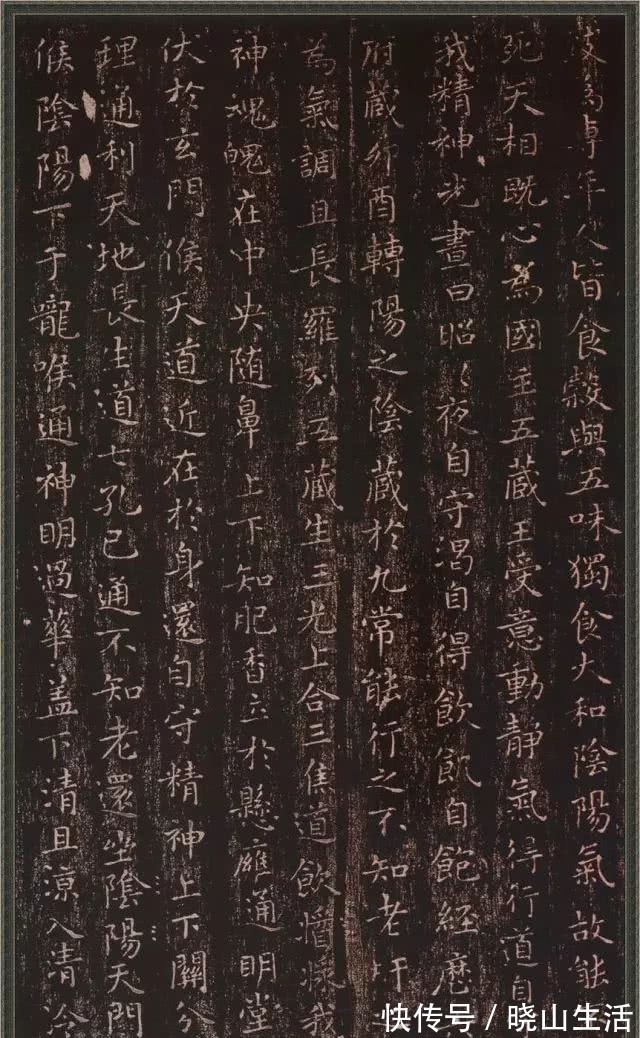 為專年人皆食穀與五味獨食大和陰陽氣故能
死天相既心為國主五藏王受意動靜氣得行道自
我精神光晝日昭〻夜自守渴自得飲飢自飽經歷
府藏卯酉轉陽之陰藏於九常能行之不知老肝
為氣調且長羅列五藏生三光上合三焦道飲醬漿我
神魂魄在中央随鼻上下知肥香立於懸膺通明堂
伏於玄門候天道近在於身還自守精神上下關分
理通利天地長生道七孔已通不知老還坐陰陽天門
候陰陽下于嚨喉通神明過華盖下清且涼入清冷
快传号 / 晓山生活